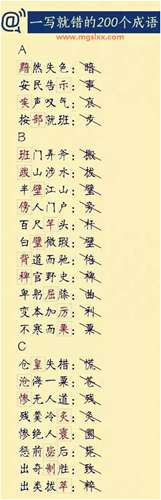 @一写就错的200个成语
www.mgslxx.com
A
黯然失色：略
安民告示：事
唉声叹气：哀
按部就班：步
B
班门弄斧：搬
跋山涉水：拔
半壁江山：璧
傍人门户：旁
百尺竿头：杆
白璧微瑕：壁
背道而驰：倍
稗官野史：裨
卑躬屈膝：曲
变本加厉：利
不寒而栗：粟
C
仓皇失措：慌
沧海一粟：苍
惨无人道：残
残羹冷炙：灸
惨绝人寰：圜
惩前毖后：毙
出奇制胜：致
出类拔萃：粹